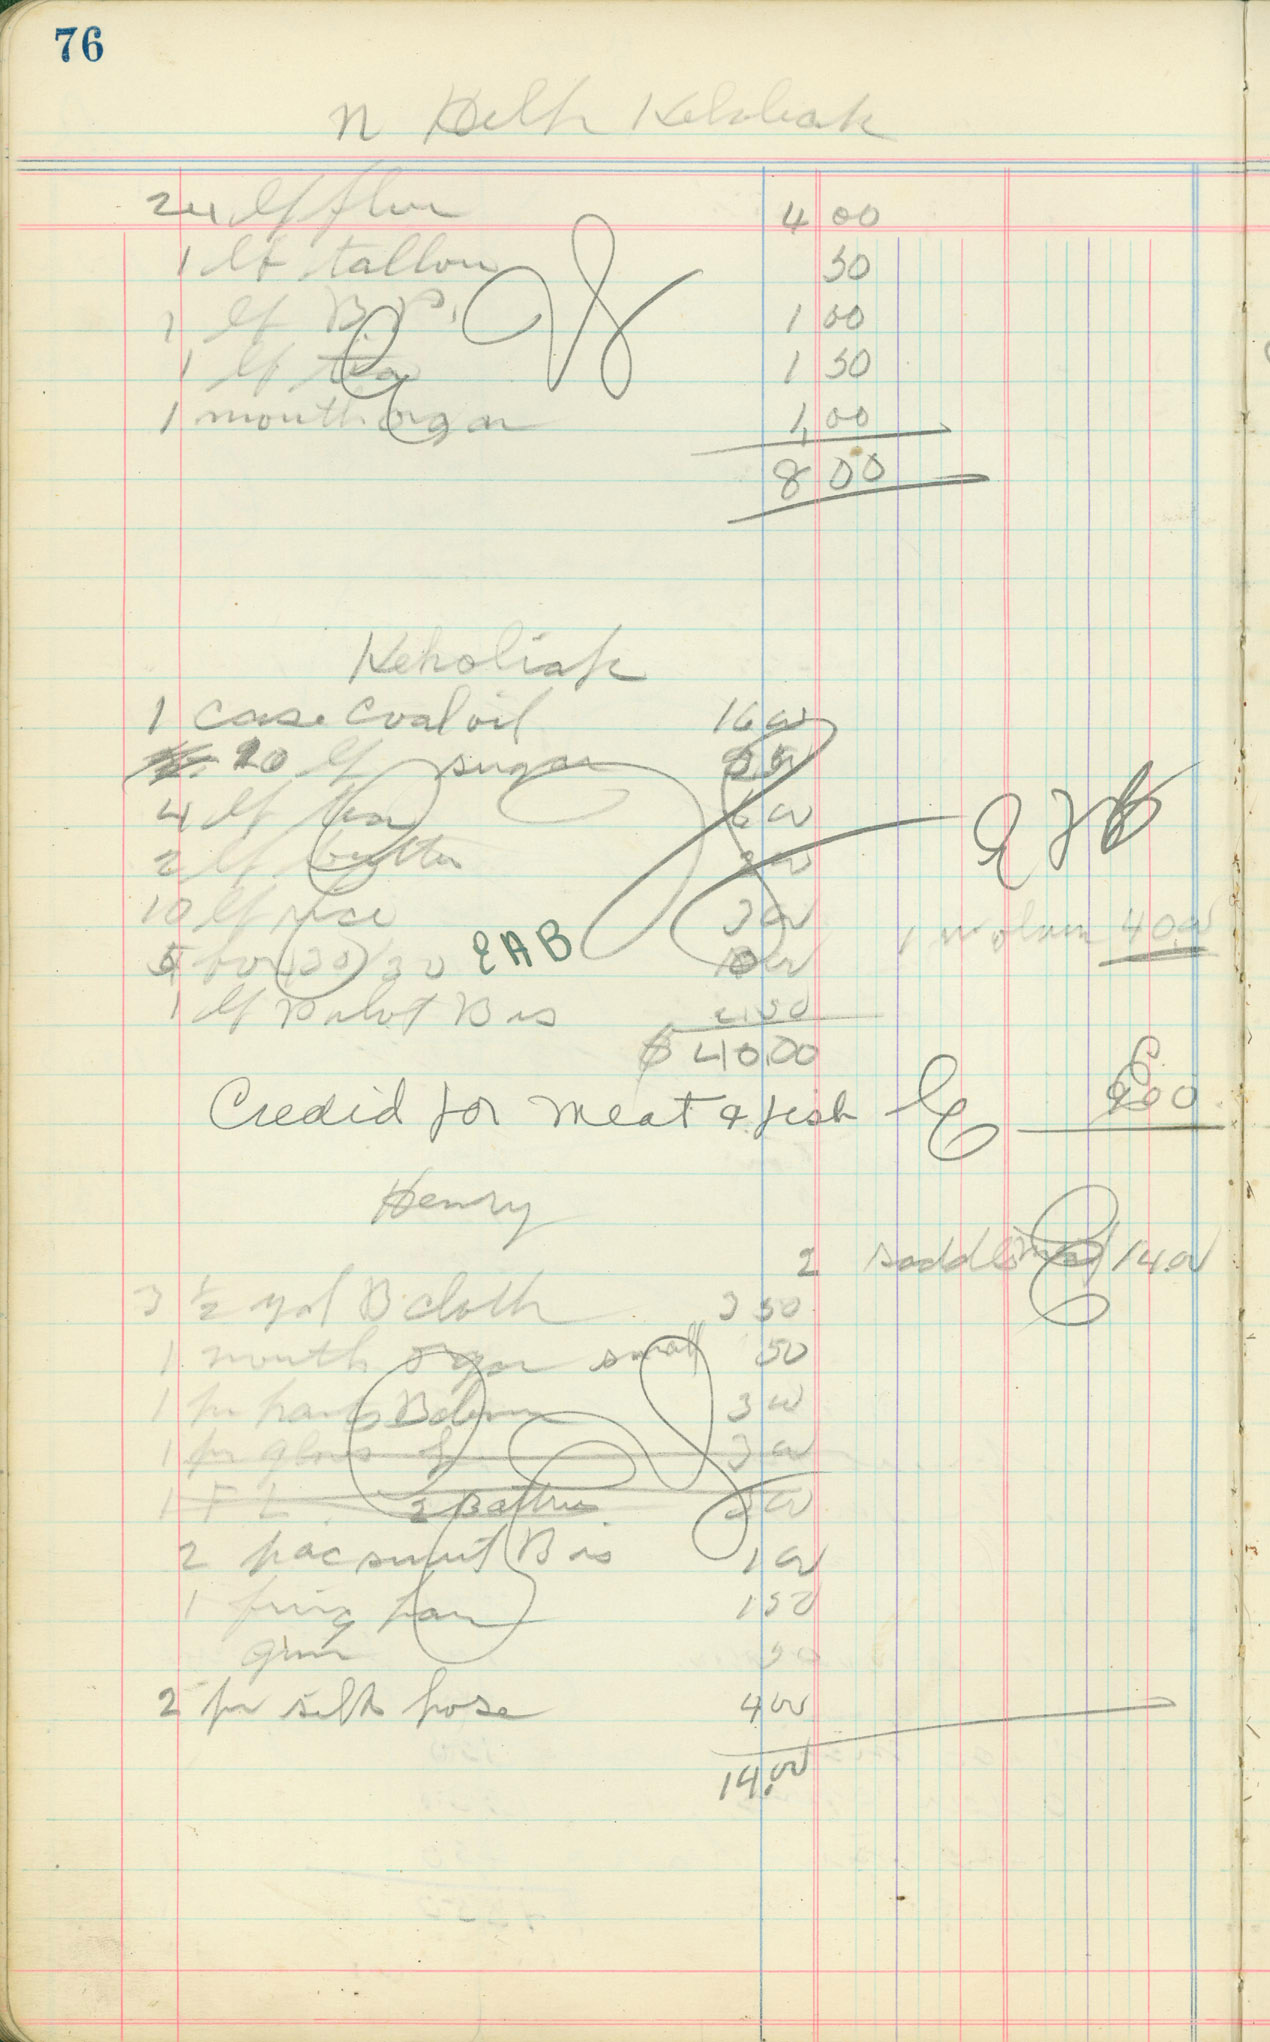 76
N Keholiak
24 lb flur 4 00
1 lb tallow 50
1 lb B. P. 1 00
1 lb tea 1 50
1 mouth organ 1,00
8 00
Keholiak
1 case Coal oil 16 00
20 lb sugar
4 lb tea 6 00
2 lb butter
10 lb rice 3 00
5 box 30/30
EAB
1 40.00
1 lb Pilot Bis
$ 40.00
Credid for meat & fish
Henry
2 14 00
3 1/2 yd B cloth 3 50
1 mouth organ small 50
1 pr pants 3 00
1 pr glovs 3 00
1 F L. 2 Battries
2 pac Bis 1 00
1 fring pan 1 50
gum 50
2 pr silk hose 4 00
14.00